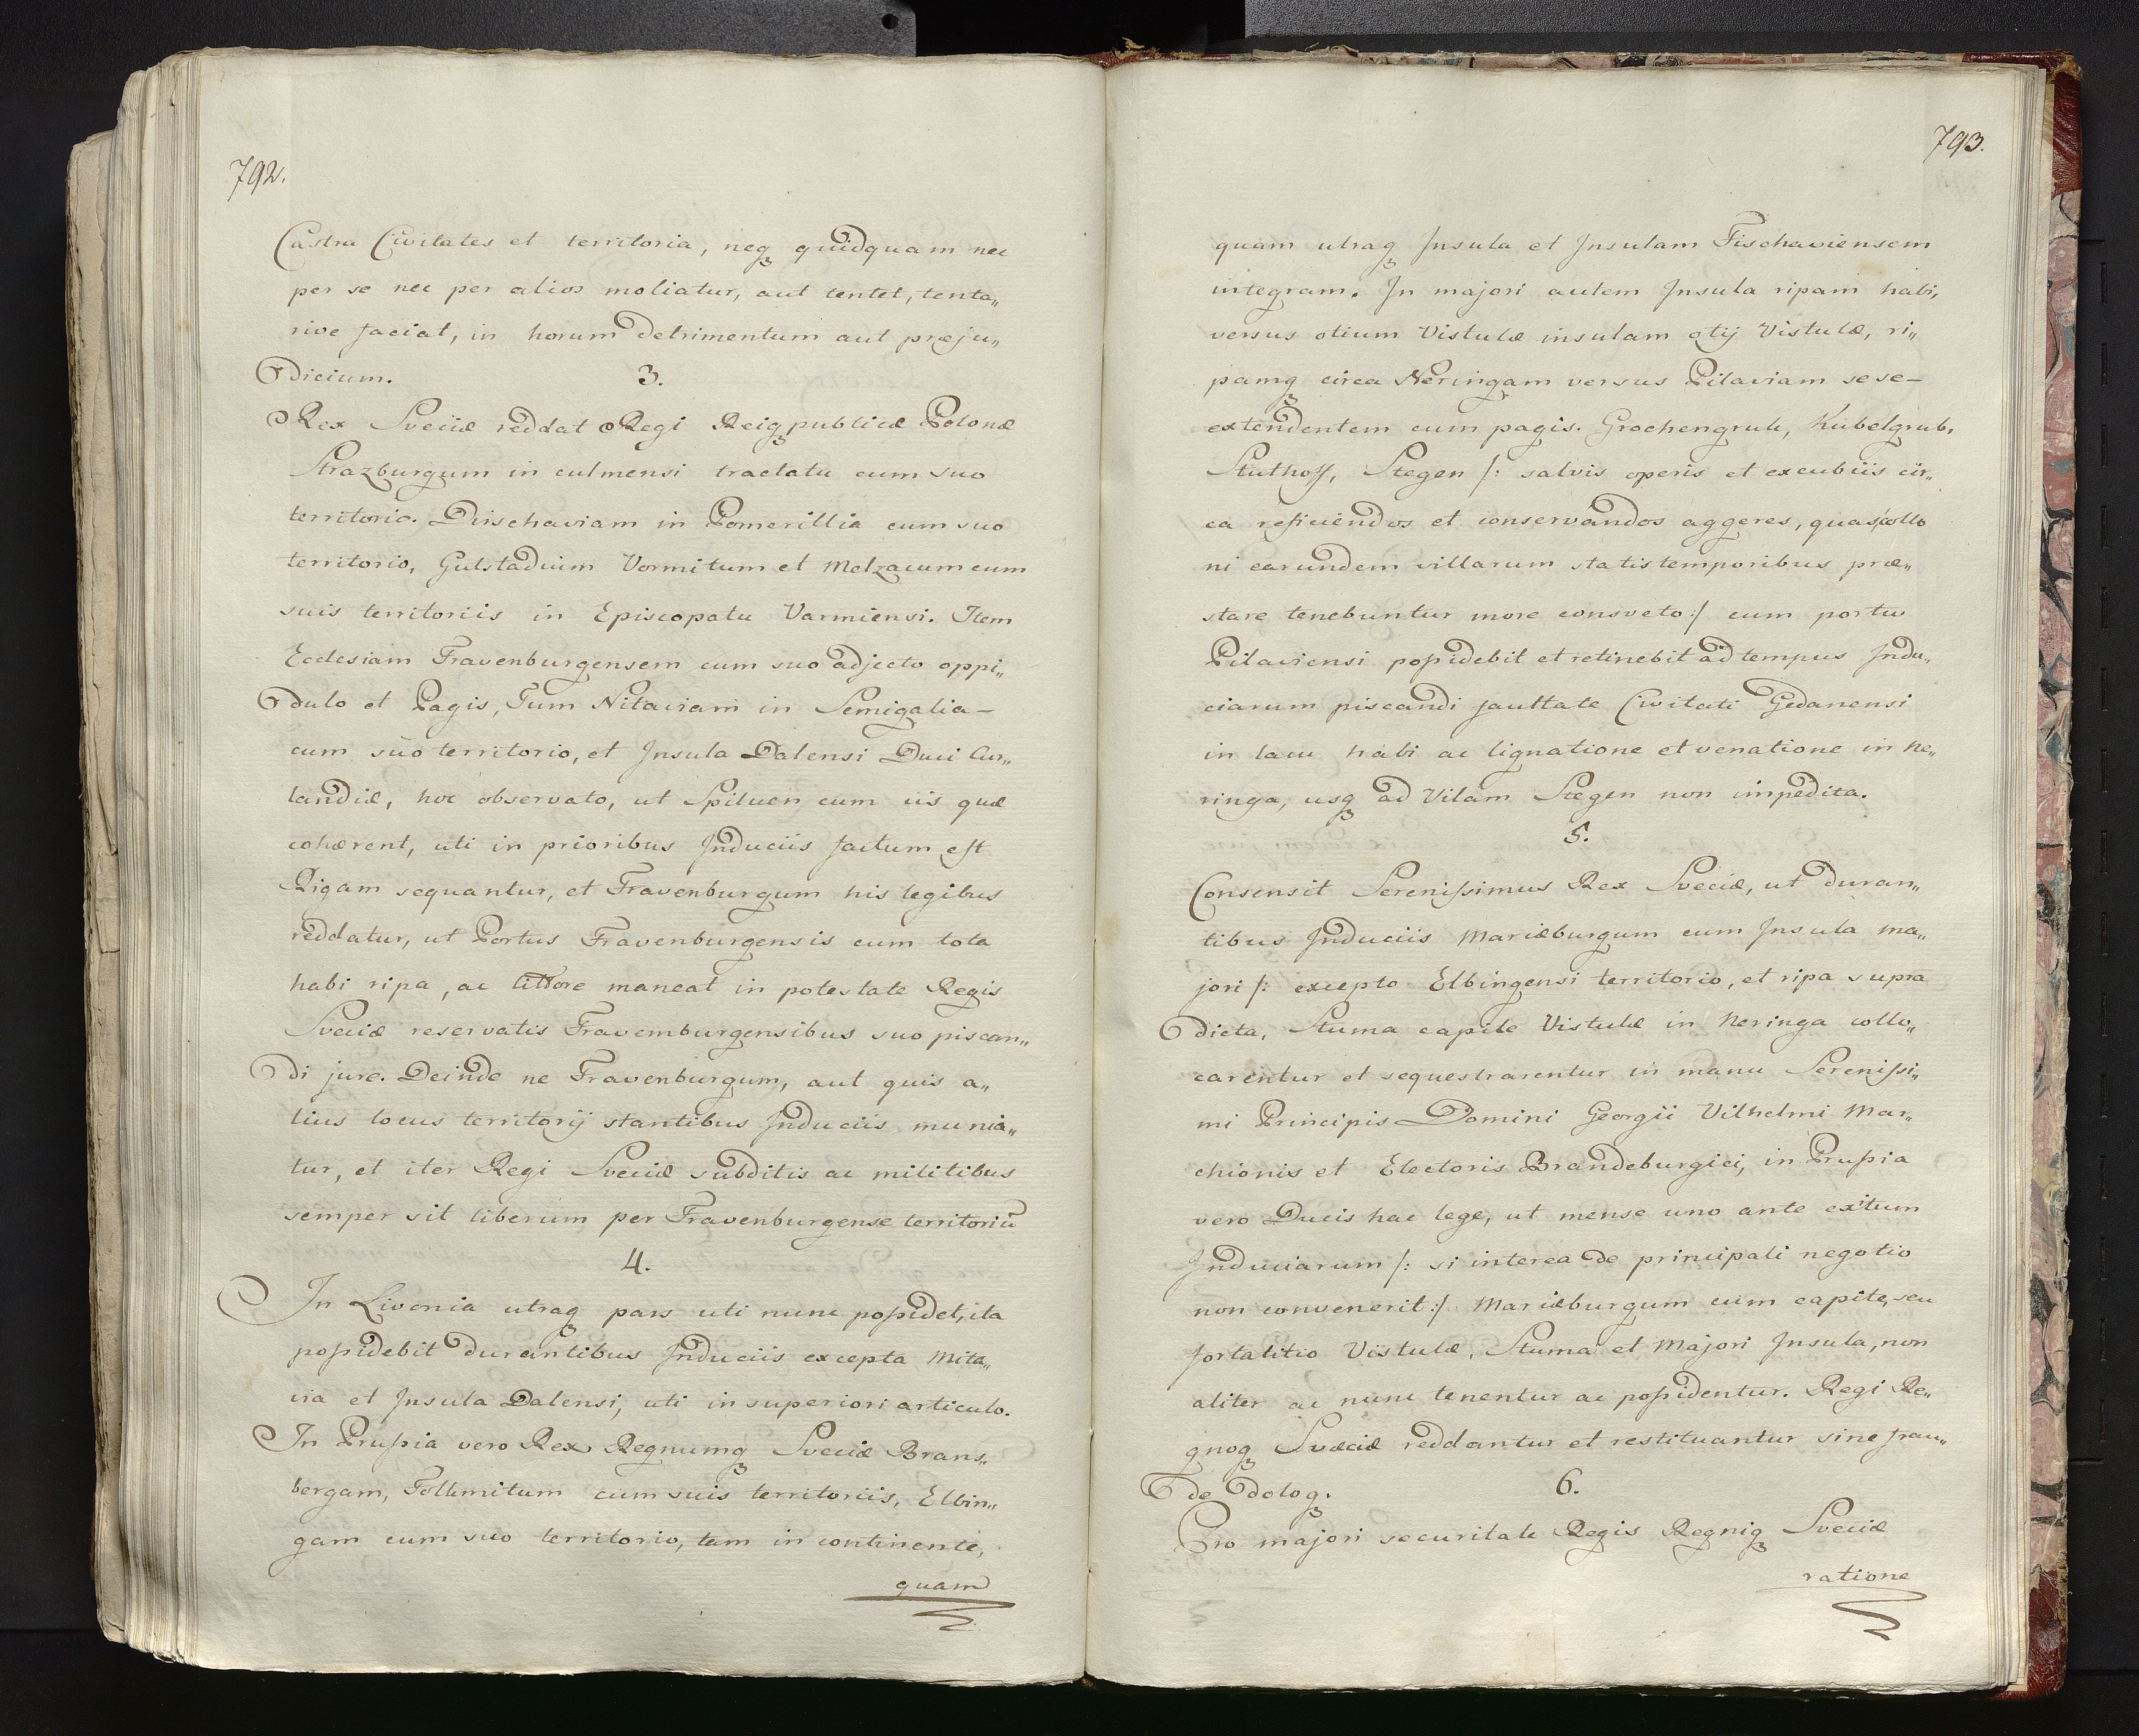 792.
Castra Civitates et territoria, neqꝫ quidquam nec
per se nec per alios moliatur, aut tentet, tenta„
rive faciat, in horum detrimentum aut præju„
dicium. 3.
Rex Sveciæ reddat Regi Reiqꝫpublicæ Polonæ
Strazburgum in culmensi tractatu cum suo
territorio. Dirschaviam in Pomerillia cum suo
territorio, Gutstadium Vormitum et Melzacum cum
suis territoriis in Episcopatu Varmiensi. Item
Ecclesiam Fravenburgensem cum suo adjecto oppi„
dulo et Pagis, Tum Nitaviam in Semigalia–
cum suo territorio, et Insula Dalensi Duci Cur„
landiæ, hoc observato, ut Spiluen cum iis quæ
cohærent, uti in prioribus Induciis factum est
Rigam sequantur, et Fravenburgum his legibus
reddatur, ut Portus Fravenburgensis cum tota
habi ripa, ac littore maneat in potestate Regis
Sveciæ reservatis Fravemburgensibus suo piscan„
di jure. Deinde ne Fravenburgum, aut quis a„
lius locus territorij stantibus Induciis munia„
tur, et iter Regi Sveciæ subditis ac militibus
semper sit liberum per Fravenburgense territoriū
4.
In Livonia utraqꝫ pars uti nunc possidet, ita
possidebit durantibus Induciis excepta Mita„
via et Insula Dalensi, uti in superiori articulo.
In Prussia vero Rex Regnumqꝫ Sveciæ Brans„
bergam, Tollimitum cum suis territoriis, Elbin„
gam cum suo territorio, tam in continente,
quam
793.
quam utraqꝫ Insula et Insulam Fischaviensem
integram. In majori autem Insula ripam habi,
versus otium Vistulæ insulam otij Vistulæ, ri„
pamqꝫ circa Neringam versus Pilaviam sese–
extendentem cum pagis. Grochengrub, Kubelgrub,
Stuthoff, Stegen /: salvis operis et excubiis cir„
ca reficiendos et conservandos aggeres, quas collo
ni earundem villarum statis temporibus præ„
stare tenebuntur more consveto :/ cum portu
Pilaviensi possidebit et retinebit ad tempus Indu„
ciarum piscandi faultate Civitati Gedanensi
in lacu habi ac lignatione et venatione in Ne„
ringa, usqꝫ ad Vilam Stegen non impedita.
5.
Consensit Serenissimus Rex Sveciæ, ut duran„
tibus Induciis Mariæburgum cum Insula ma„
jori /: excepto Elbingensi territorio, et ripa supra
dicta, Stuma capite Vistulæ in Neringa collo„
carentur et sequestrarentur in manu Serenissi„
mi Principis Domini Georgii Vilhelmi Mar„
chionis et Electoris Brandeburgici, in Prussia
vero Ducis hac lege, ut mense uno ante exitum
Induciarum /: si interea de principali negotio
non convenerit :/ Mariæburgum cum capite, seu
fortalitio Vistulæ, Stuma et Majori Insula, non
aliter ac nunc tenentur ac possidentur. Regi Re„
gnoqꝫ Svæciæ reddantur et restituantur sine frau„
de doloqꝫ. 6.
Pro majori securitate Regis Regniqꝫ Sveciæ
ratione